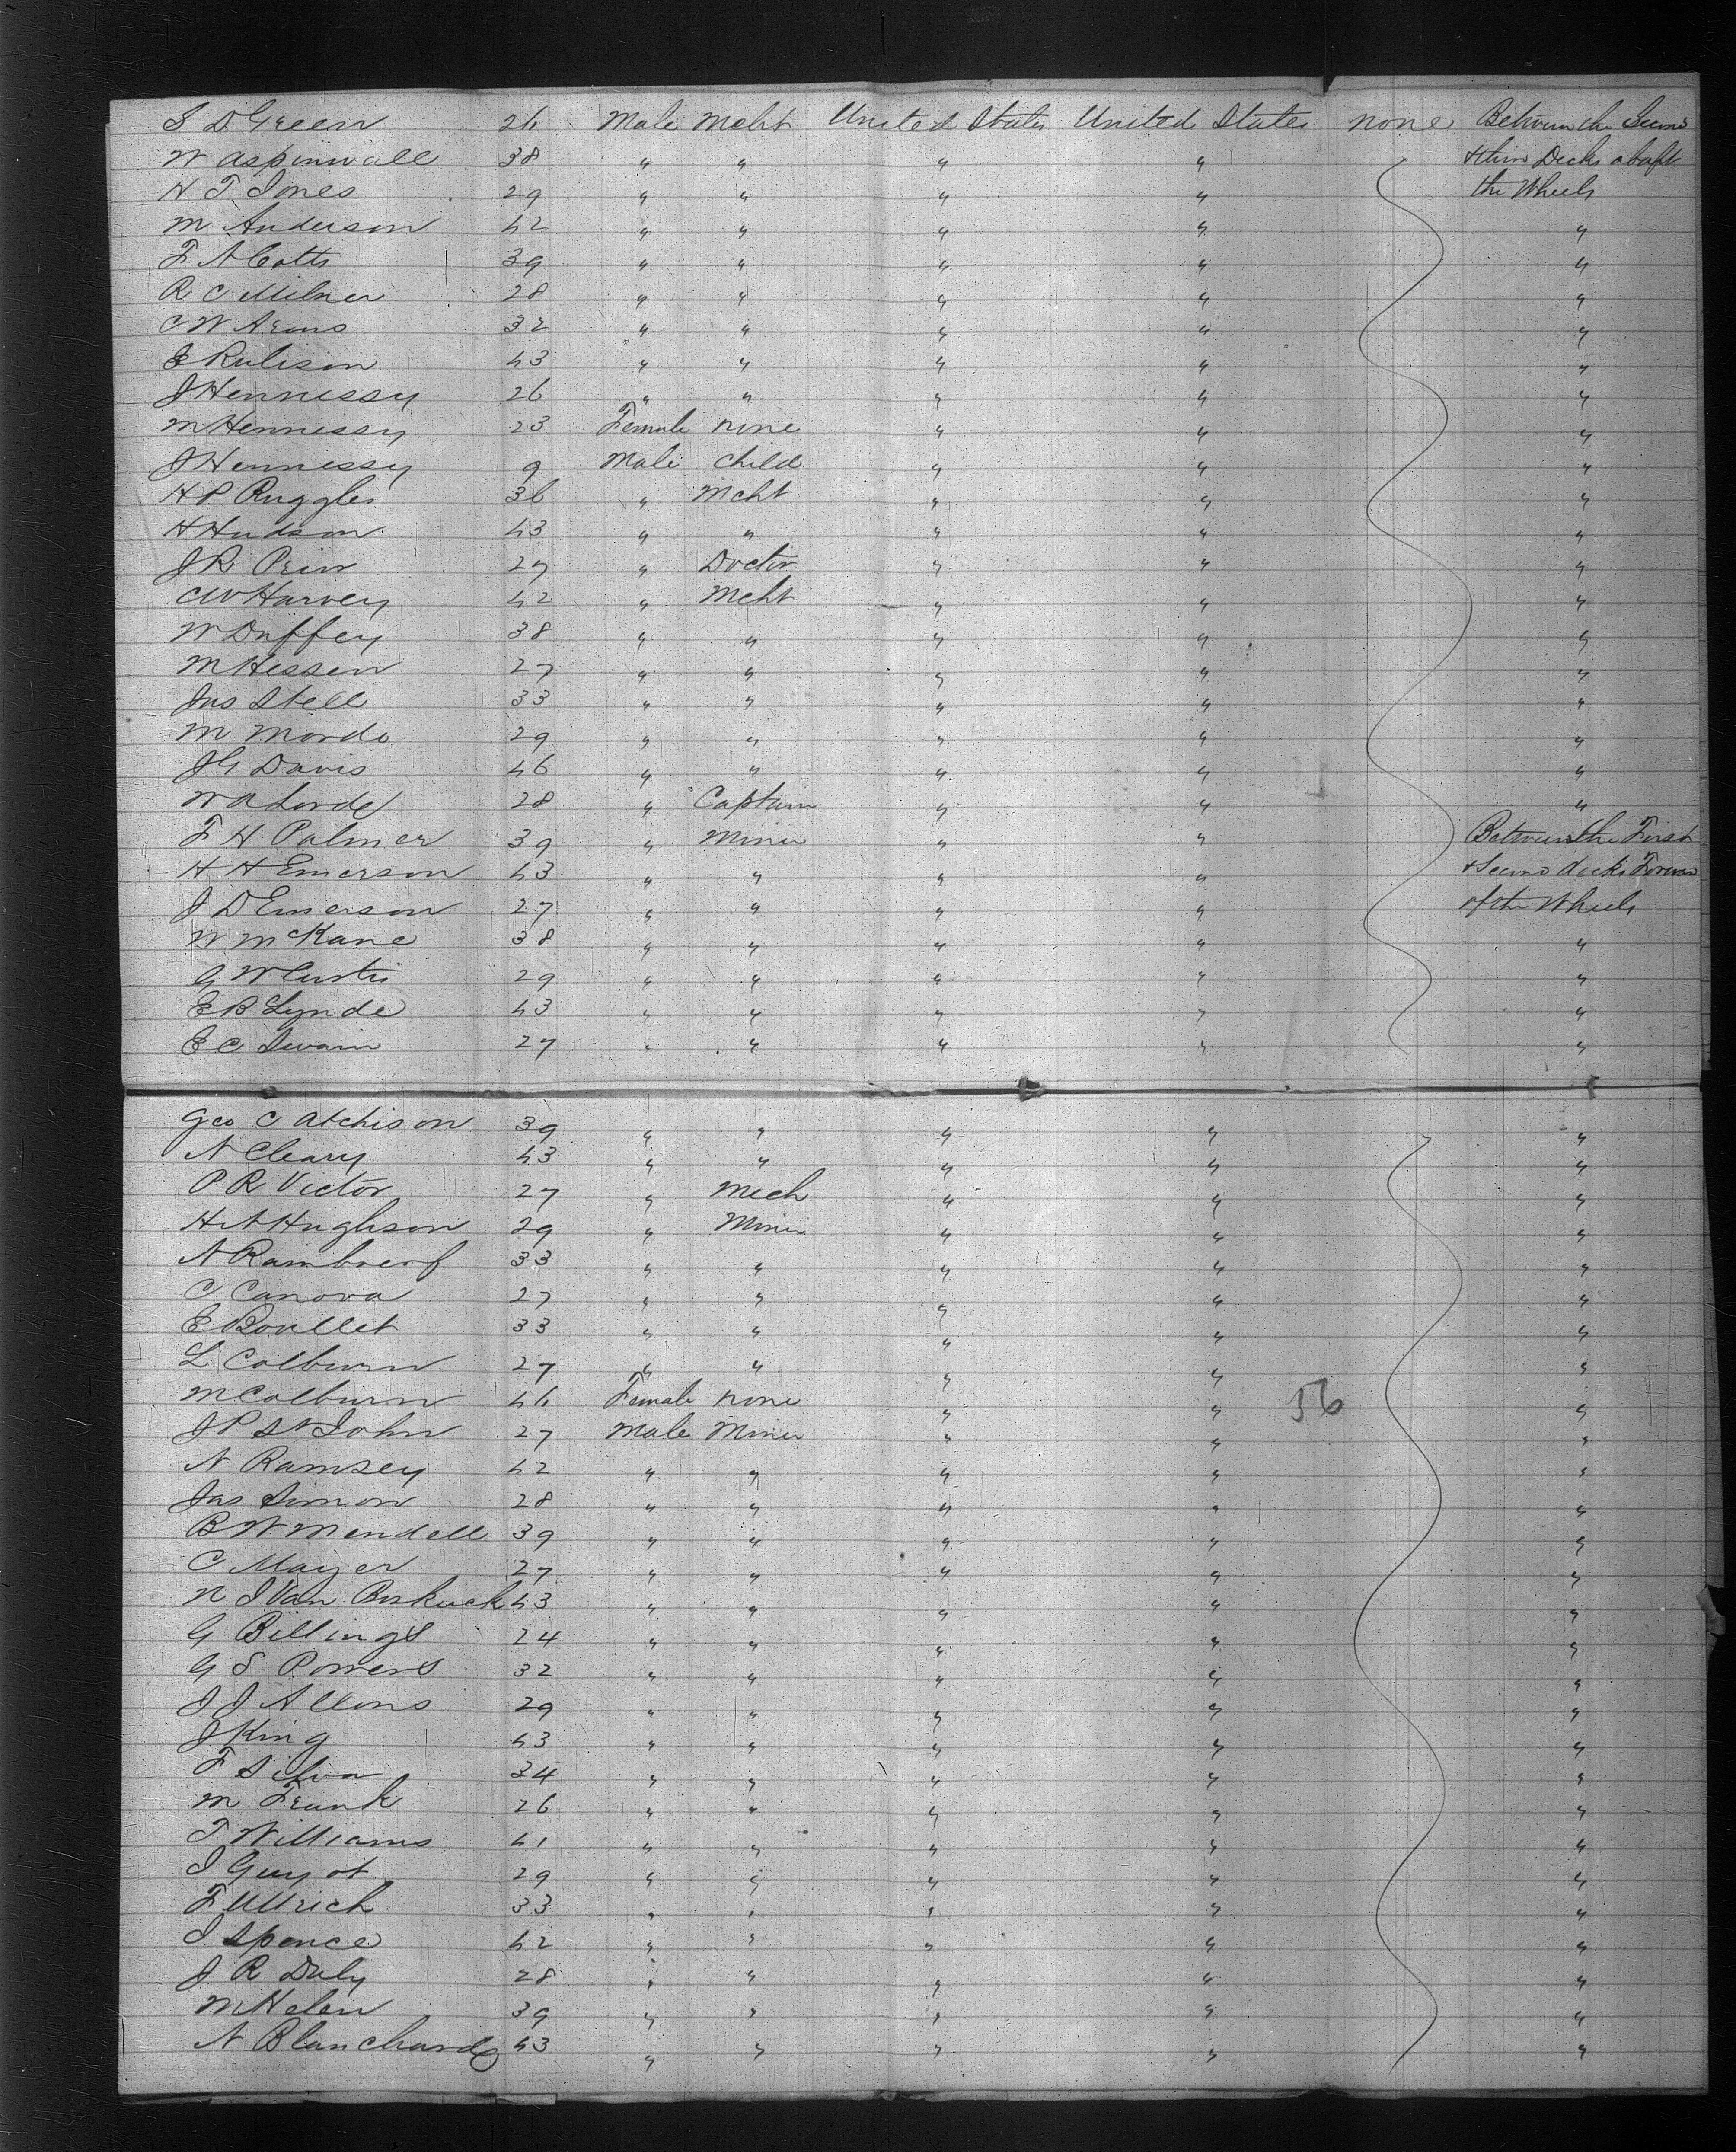 S D Green 26 Male Mcht United States United States none Between the Second
W Aspinwall 38 " " " " & third Decks abaft
H T Jones 29 " " " " the Wheels
M Anderson 42 " " " " "
F A Cotts 39 " " " " "
R C Milner 28 " " " " "
C W Arons 32 " " " " "
E Rulison 43 " " " " "
J Hennessy 26 " " " " "
M Hennessy 23 Female none " " "
J Hennessy 9 Male Child " " "
H P Ruggles 36 " Mcht " " "
H Hudson 43 " " " " "
J R Prior 27 " Doctor " " "
C W Harvey 42 " Mcht " " "
W Duffey 38 " " " " "
M Hessen 27 " " " " "
Jas Stell 33 " " " " "
M Mordo 29 " " " " "
J G Davis 46 " " " " "
W A Lorde 28 " Captain " " "
F H Palmer 39 " Miner " " Between the First
H H Emerson 43 " " " " & Second decks Forward
J D Emerson 27 " " " " of the Wheels
W McKane 38 " " " " "
G W Curtis 29 " " " " "
E B Lynde 43 " " " " "
E C Swain 27 " " " " "
Geo C Atchison 39 " " " " "
N Cleary 43 " " " " "
P R Victor 27 " Mech " " "
H A Hughson 29 " Miner " " "
N 33 " " " " "
C Canova 27 " " " " "
E Boullet 33 " " " " "
L Colburn 27 " " " " "
M Colburn 46 Female none " " 56 "
J P St John 27 Male Miner " " "
N Ramsey 42 " " " " "
Jas Simon 28 " " " " "
B W Mendell 39 " " " " "
C Mayer 27 " " " " "
N J Van Buskuck 43 " " " " "
G Billings 24 " " " " "
G S Powers 32 " " " " "
J J Allons 29 " " " " "
J King 43 " " " " "
F Silva 34 " " " " "
M Frank 26 " " " " "
T Williams 41 " " " " "
J Guyot 29 " " " " "
F Ullrich 33 " " " " "
J Spence 42 " " " " "
J R Daly 28 " " " " "
M Helen 39 " " " " "
N Blanchard 43 " " " " "